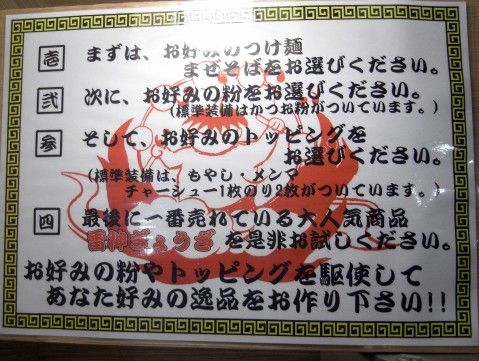 壱 まずは、お好みのつけ麺
まぜそばをお選びください。
弐 次に、お好みの粉をお選びください。
(標準装備はかつお粉がついています。)
参 そして、お好みのトッピングを
お選びください。
(標準装備は、もやし・メンマ
チャーシュー1枚のり2枚がついています。)
四 最後に一番売れている大人気商品
雷神ぎょうざを是非お試しください。
お好みの粉やトッピングを駆使して
あなた好みの逸品をお作り下さい!!